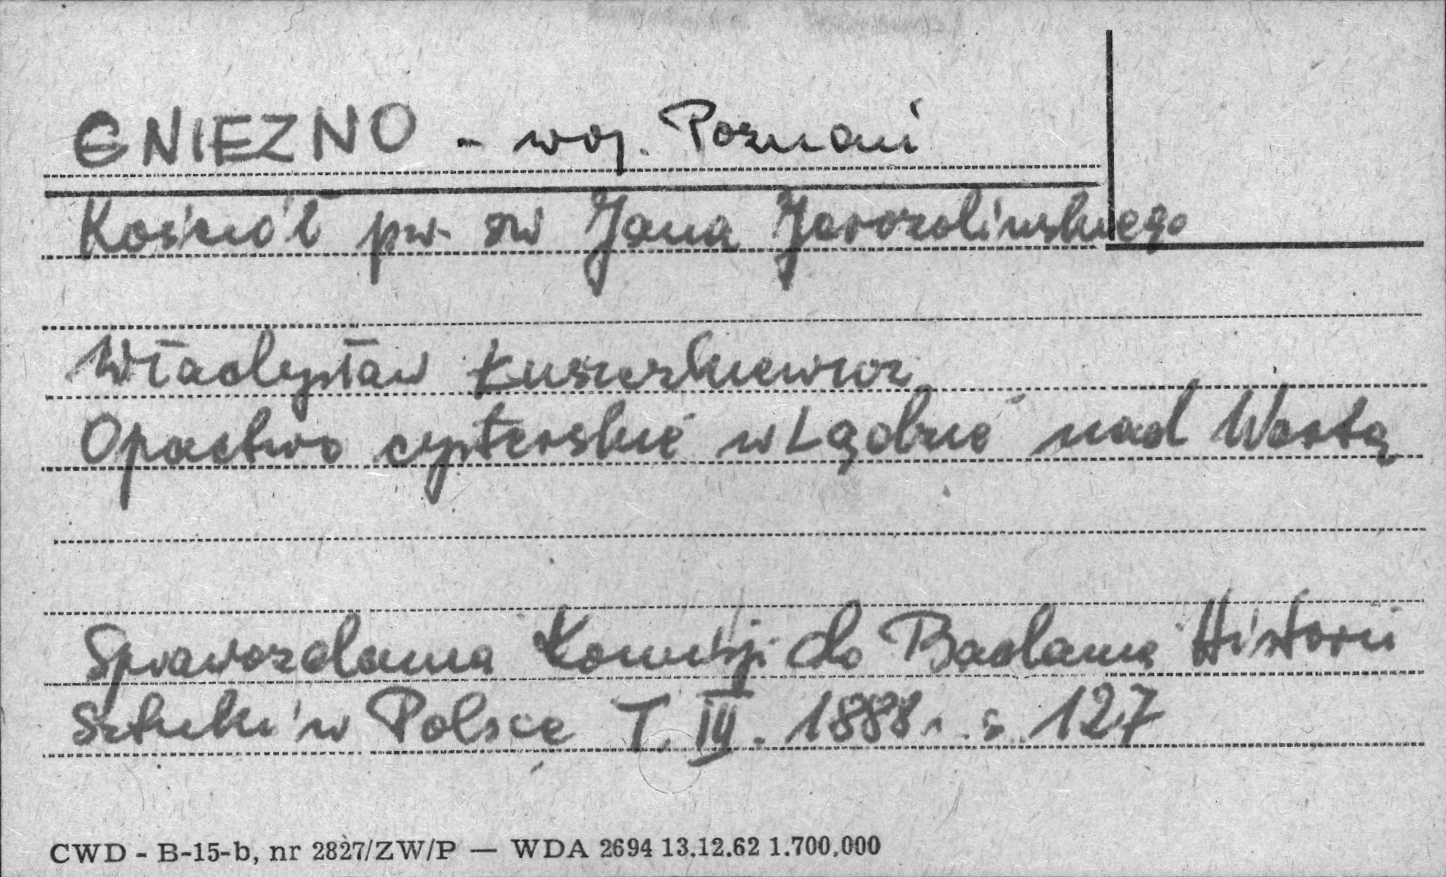 GNIEZNO - woj. Poznań
Kościół pw. św Jana Jerozolimskiego
Władysław Łuszczkiewicz
Opactwo cysterskie w Lądzie nad Wartą
Sprawozdania Komisji do Badania Historii
Sztuki w Polsce T. III. 1888r. s. 127
CWD - B-15-b, nr 2827/ZW/P — WDA 2694 13.12.62 1.700.000